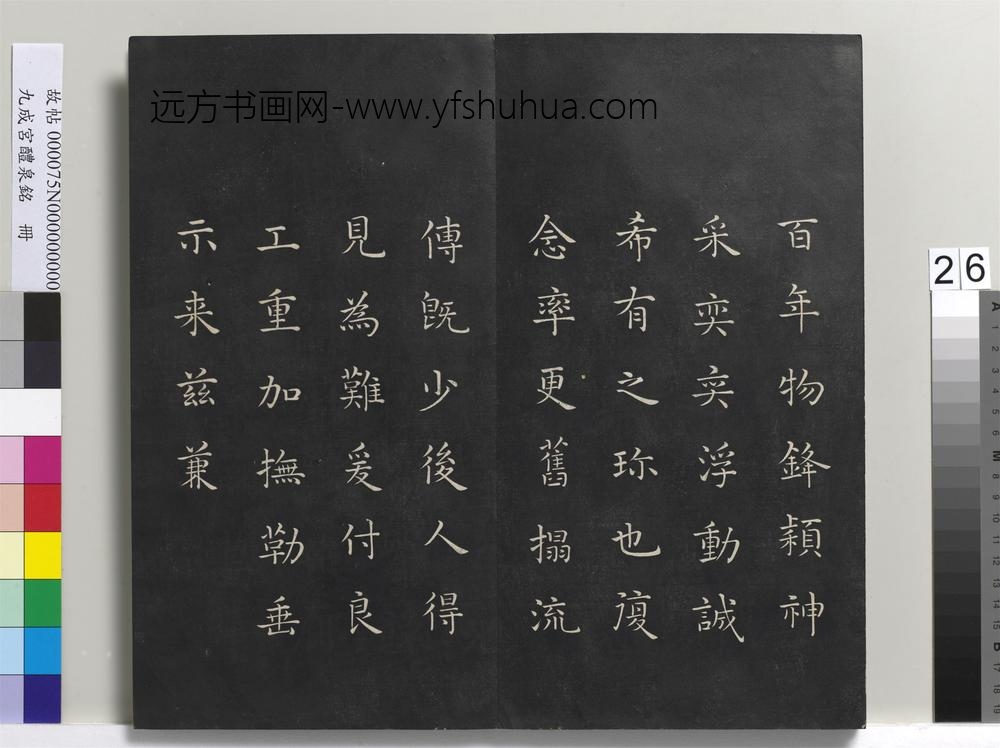 远方书画网-www.yfshuhua.com
百年物鋒穎神
采奕奕浮動誠
希有之珎也復
念率更舊搨流
傳既少後人得
見為難爰付良
工重加撫勒垂
示来兹兼
故帖 000075N000000000
九成宮醴泉銘 冊
26
A 1 2 3 4 5 6 M 8 9 10 11 12 13 14 15 B 17 18 19